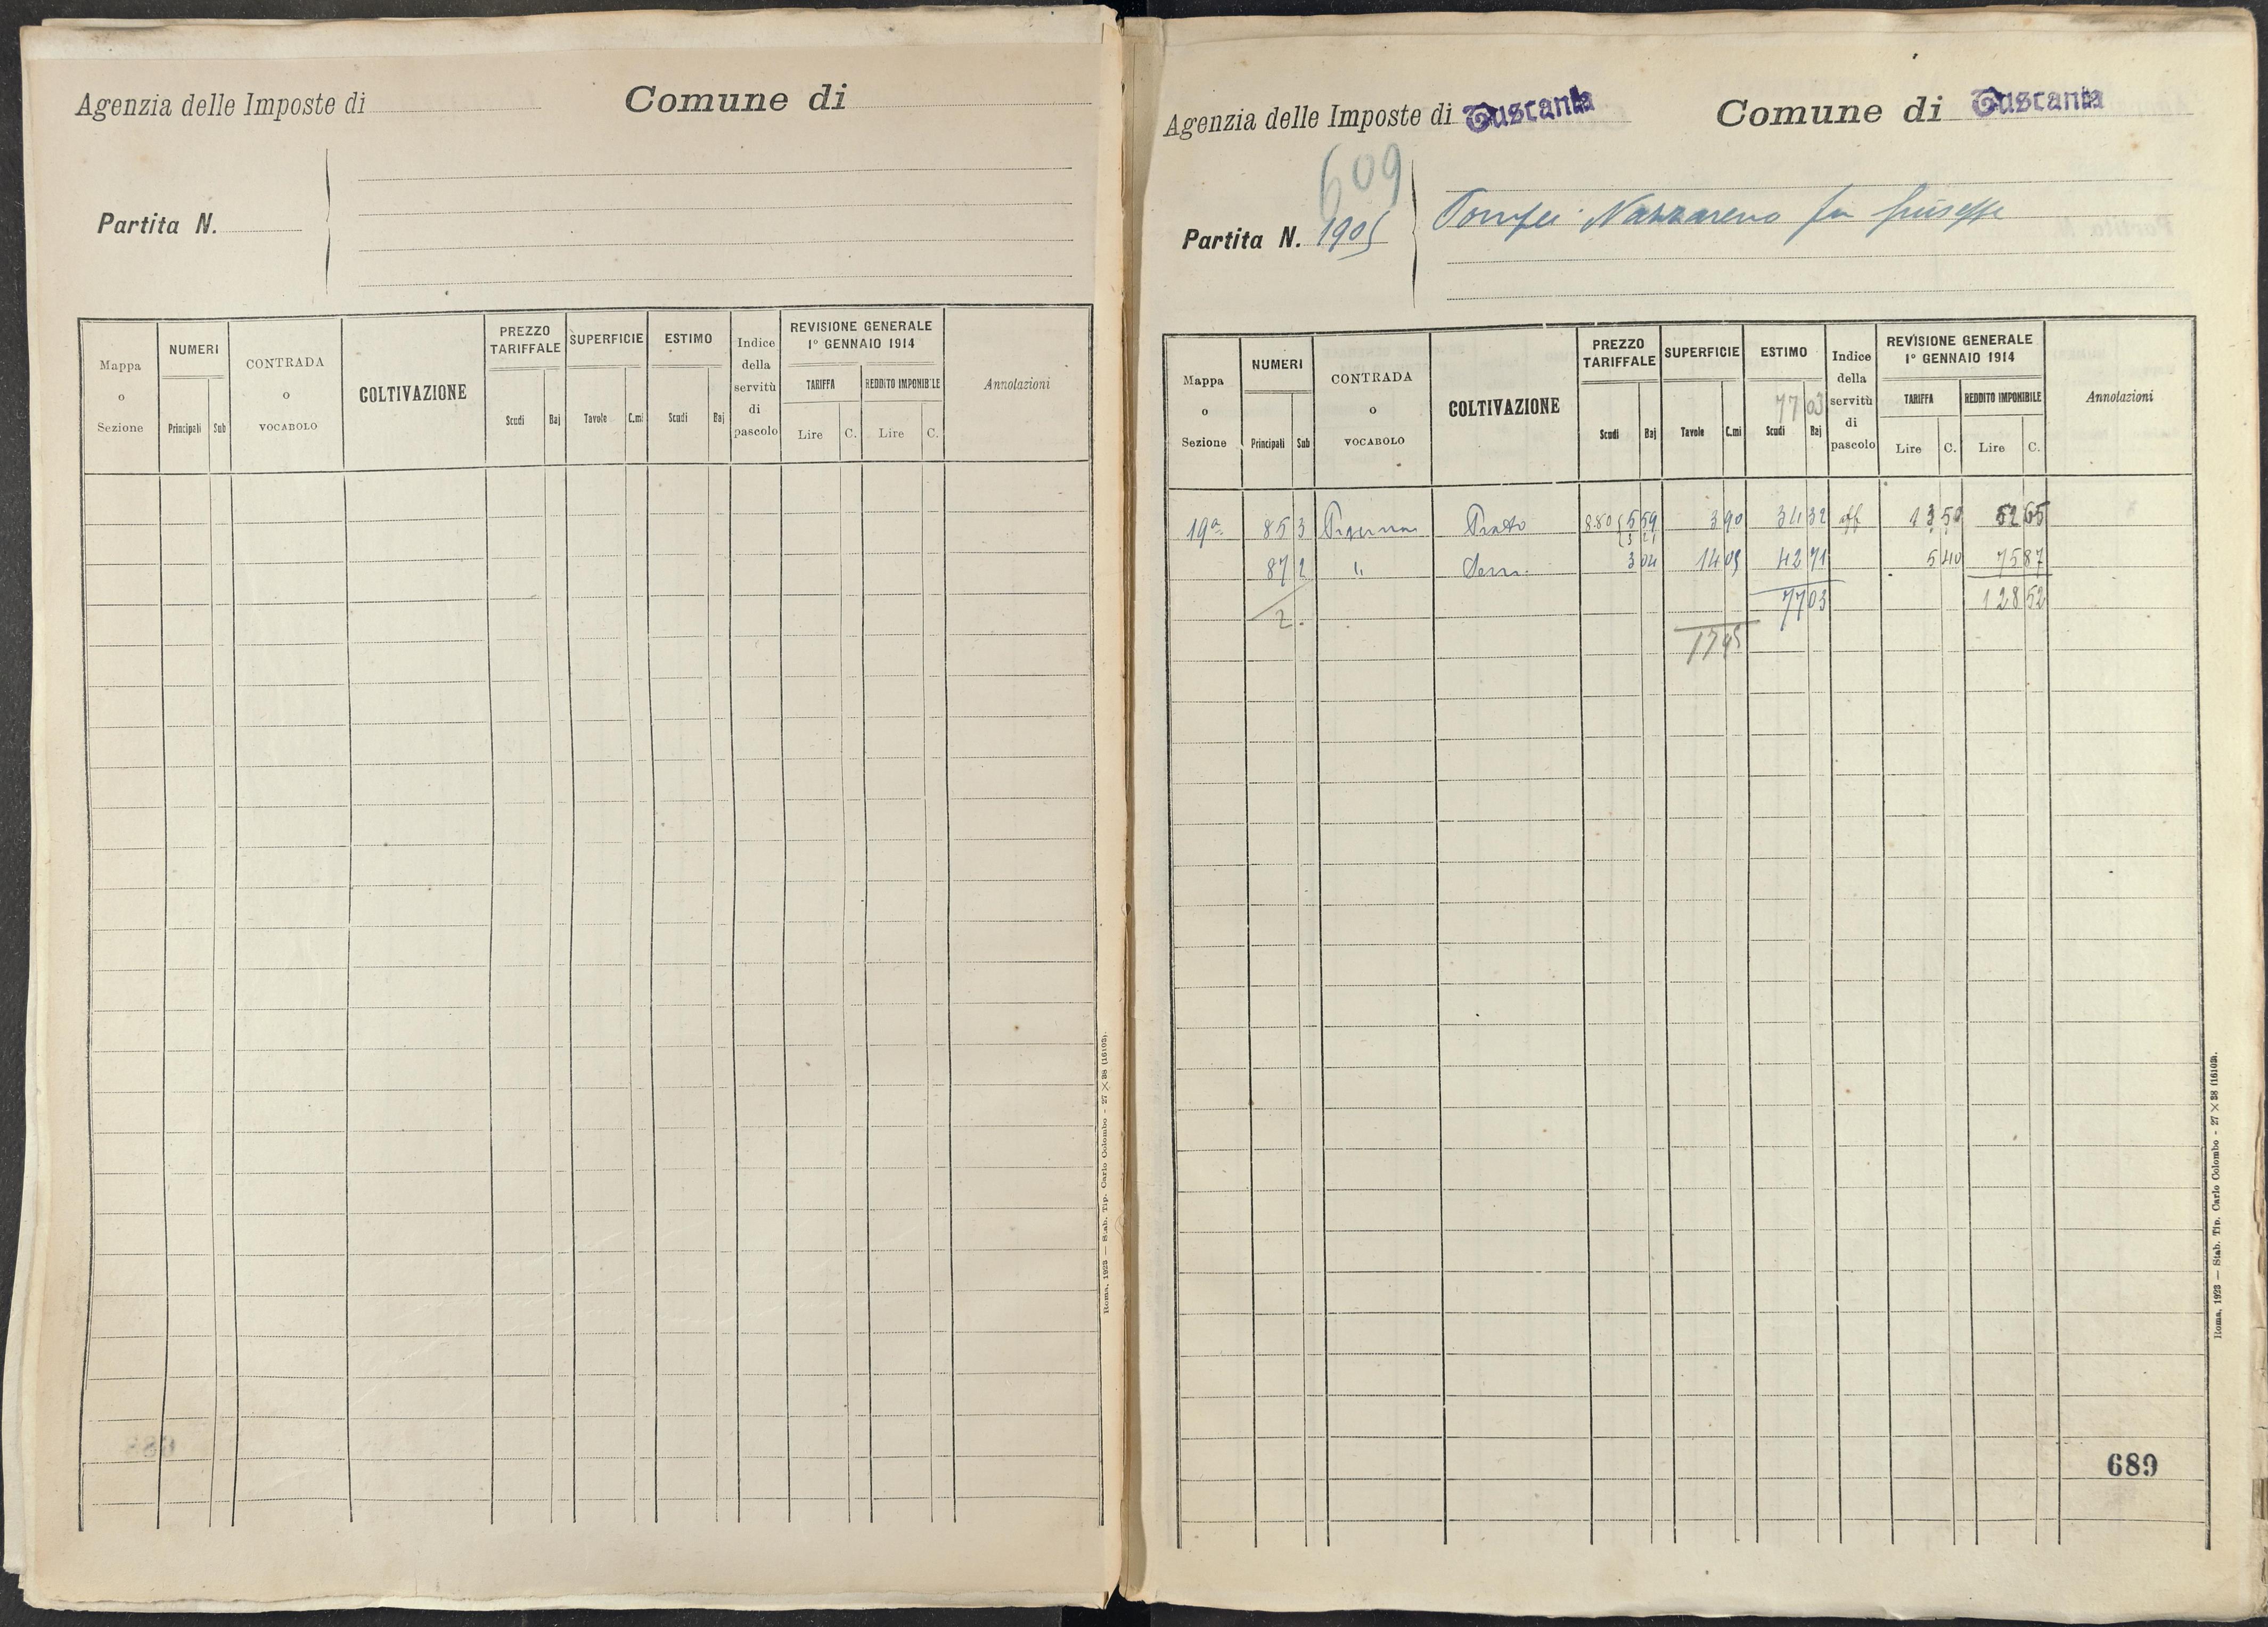 Agenzia delle Imposte di
Comune di
Partita N.
Mappa o Sezione
NUMERI
Principali
Sub
CONTRADA o VOCABOLO
COLTIVAZIONE
PREZZO TARIFFALE
Scudi
Baj
SUPERFICIE
Tavole
C.mi
ESTIMO
Scudi
Baj
Indice della servitù di pascolo
REVISIONE GENERALE
1° GENNAIO 1914
TARIFFA
REDDITO IMPONIBILE
Lire
C.
Lire
C.
Annotazioni
Roma, 1923 — Stab. Tip. Carlo Colombo - 27 × 38 (16103).
Agenzia delle Imposte di Tuscania
Comune di Tuscania
609
Partita N. 1905
Pompei Nazzareno fu Giuseppe
Mappa o Sezione
NUMERI
Principali
Sub
CONTRADA o VOCABOLO
COLTIVAZIONE
PREZZO TARIFFALE
Scudi
Baj
SUPERFICIE
Tavole
C.mi
ESTIMO
77 03
Scudi
Baj
Indice della servitù di pascolo
REVISIONE GENERALE
1° GENNAIO 1914
TARIFFA
REDDITO IMPONIBILE
Lire
C.
Lire
C.
Annotazioni
19a 85 3 Prato 8.80 5 59 3 90 34 32 aff 13 50 52 65
3 21
87 2 " Sem. 3 04 14 05 42 71 5 40 75 87
2. 77 03 128 52
17 95
689
Roma, 1923 — Stab. Tip. Carlo Colombo - 27 × 38 (16103).